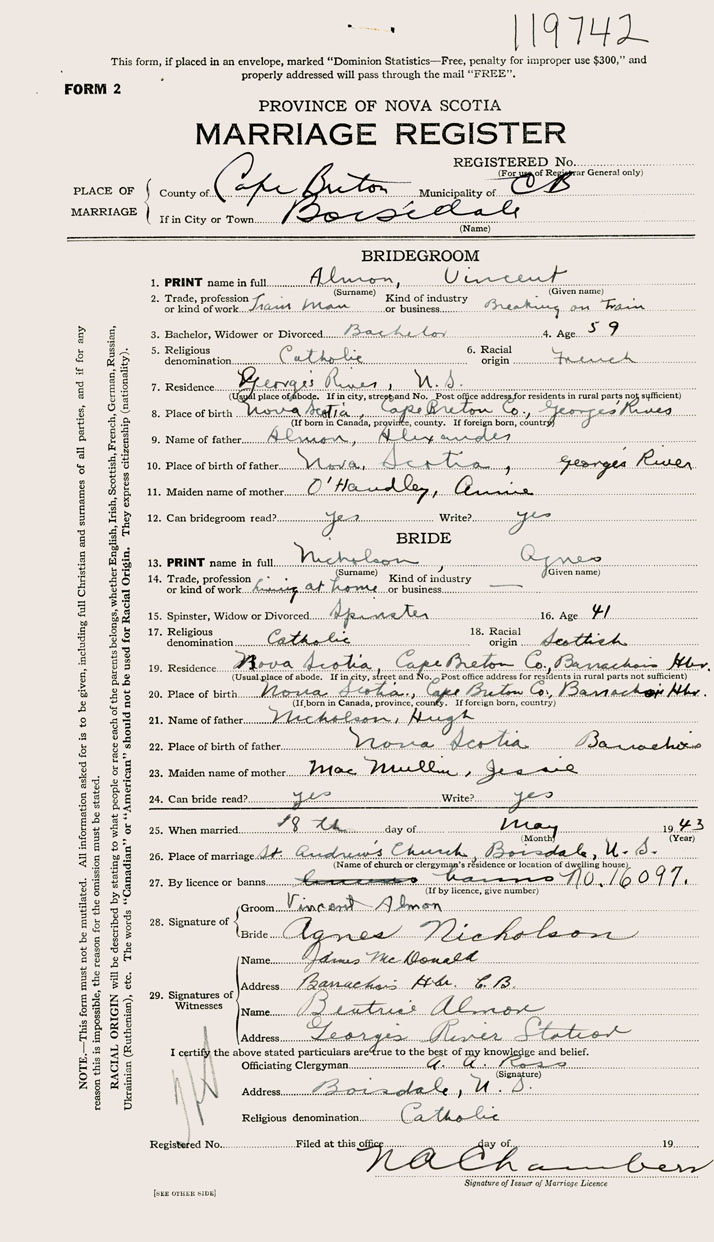 119742
This form, if placed in an envelope, marked "Dominion Statistics—Free, penalty for improper use $300," and
properly addressed will pass through the mail "FREE".
FORM 2
PROVINCE OF NOVA SCOTIA
MARRIAGE REGISTER
REGISTERED No.
(For use of Registrar General only)
PLACE OF MARRIAGE
County of Cape Breton Municipality of CB
If in City or Town Boisdale
(Name)
BRIDEGROOM
1. PRINT name in full Almon, Vincent
(Surname) (Given name)
2. Trade, profession or kind of work Train Man Kind of industry or business Breaking on Train
3. Bachelor, Widower or Divorced Bachelor 4. Age 59
5. Religious denomination Catholic 6. Racial origin French
7. Residence Georges River, N.S.
(Usual place of abode. If in city, street and No. Post office address for residents in rural parts not sufficient)
8. Place of birth Nova Scotia, Cape Breton Co., Georges River
(If born in Canada, province, county. If foreign born, country)
9. Name of father Almon, Alexander
10. Place of birth of father Nova, Scotia, George's River
11. Maiden name of mother O'Handley, Annie
12. Can bridegroom read? yes Write? yes
BRIDE
13. PRINT name in full Nicholson, Agnes
(Surname) (Given name)
14. Trade, profession or kind of work living at home Kind of industry or business —
15. Spinster, Widow or Divorced Spinster 16. Age 41
17. Religious denomination Catholic 18. Racial origin Scottish
19. Residence Nova Scotia, Cape Breton Co., Barrachois Hbr.
(Usual place of abode. If in city, street and No. Post office address for residents in rural parts not sufficient)
20. Place of birth Nova Scotia, Cape Breton Co., Barrachois Hbr.
(If born in Canada, province, county. If foreign born, country)
21. Name of father Nicholson, Hugh
22. Place of birth of father Nova Scotia Barrachois
23. Maiden name of mother Mac Mullin, Jessie
24. Can bride read? yes Write? yes
25. When married 8th day of May 1943
(Month) (Year)
26. Place of marriage St. Andrew's Church, Boisdale, N.S.
(Name of church or clergyman's residence or location of dwelling house)
27. By licence or banns banns No. 16097.
(If by licence, give number)
28. Signature of
Groom Vincent Almon
Bride Agnes Nicholson
29. Signatures of Witnesses
Name James McDonald
Address Barrachois Hbr. C.B.
Name Beatrice Almon
Address Georges River Station
I certify the above stated particulars are true to the best of my knowledge and belief.
Officiating Clergyman A. A. Ross
(Signature)
Address Boisdale, N.S.
Religious denomination Catholic
Registered No. Filed at this office day of 19
N A Chambers
Signature of Issuer of Marriage Licence
[SEE OTHER SIDE]
NOTE.—This form must not be mutilated. All information asked for is to be given, including full Christian and surnames of all parties, and if for any
reason this is impossible, the reason for the omission must be stated.
RACIAL ORIGIN will be described by stating to what people or race each of the parents belongs, whether English, Irish, Scottish, French, German, Russian,
Ukrainian (Ruthenian), etc. The words "Canadian" or "American" should not be used for Racial Origin. They express citizenship (nationality).